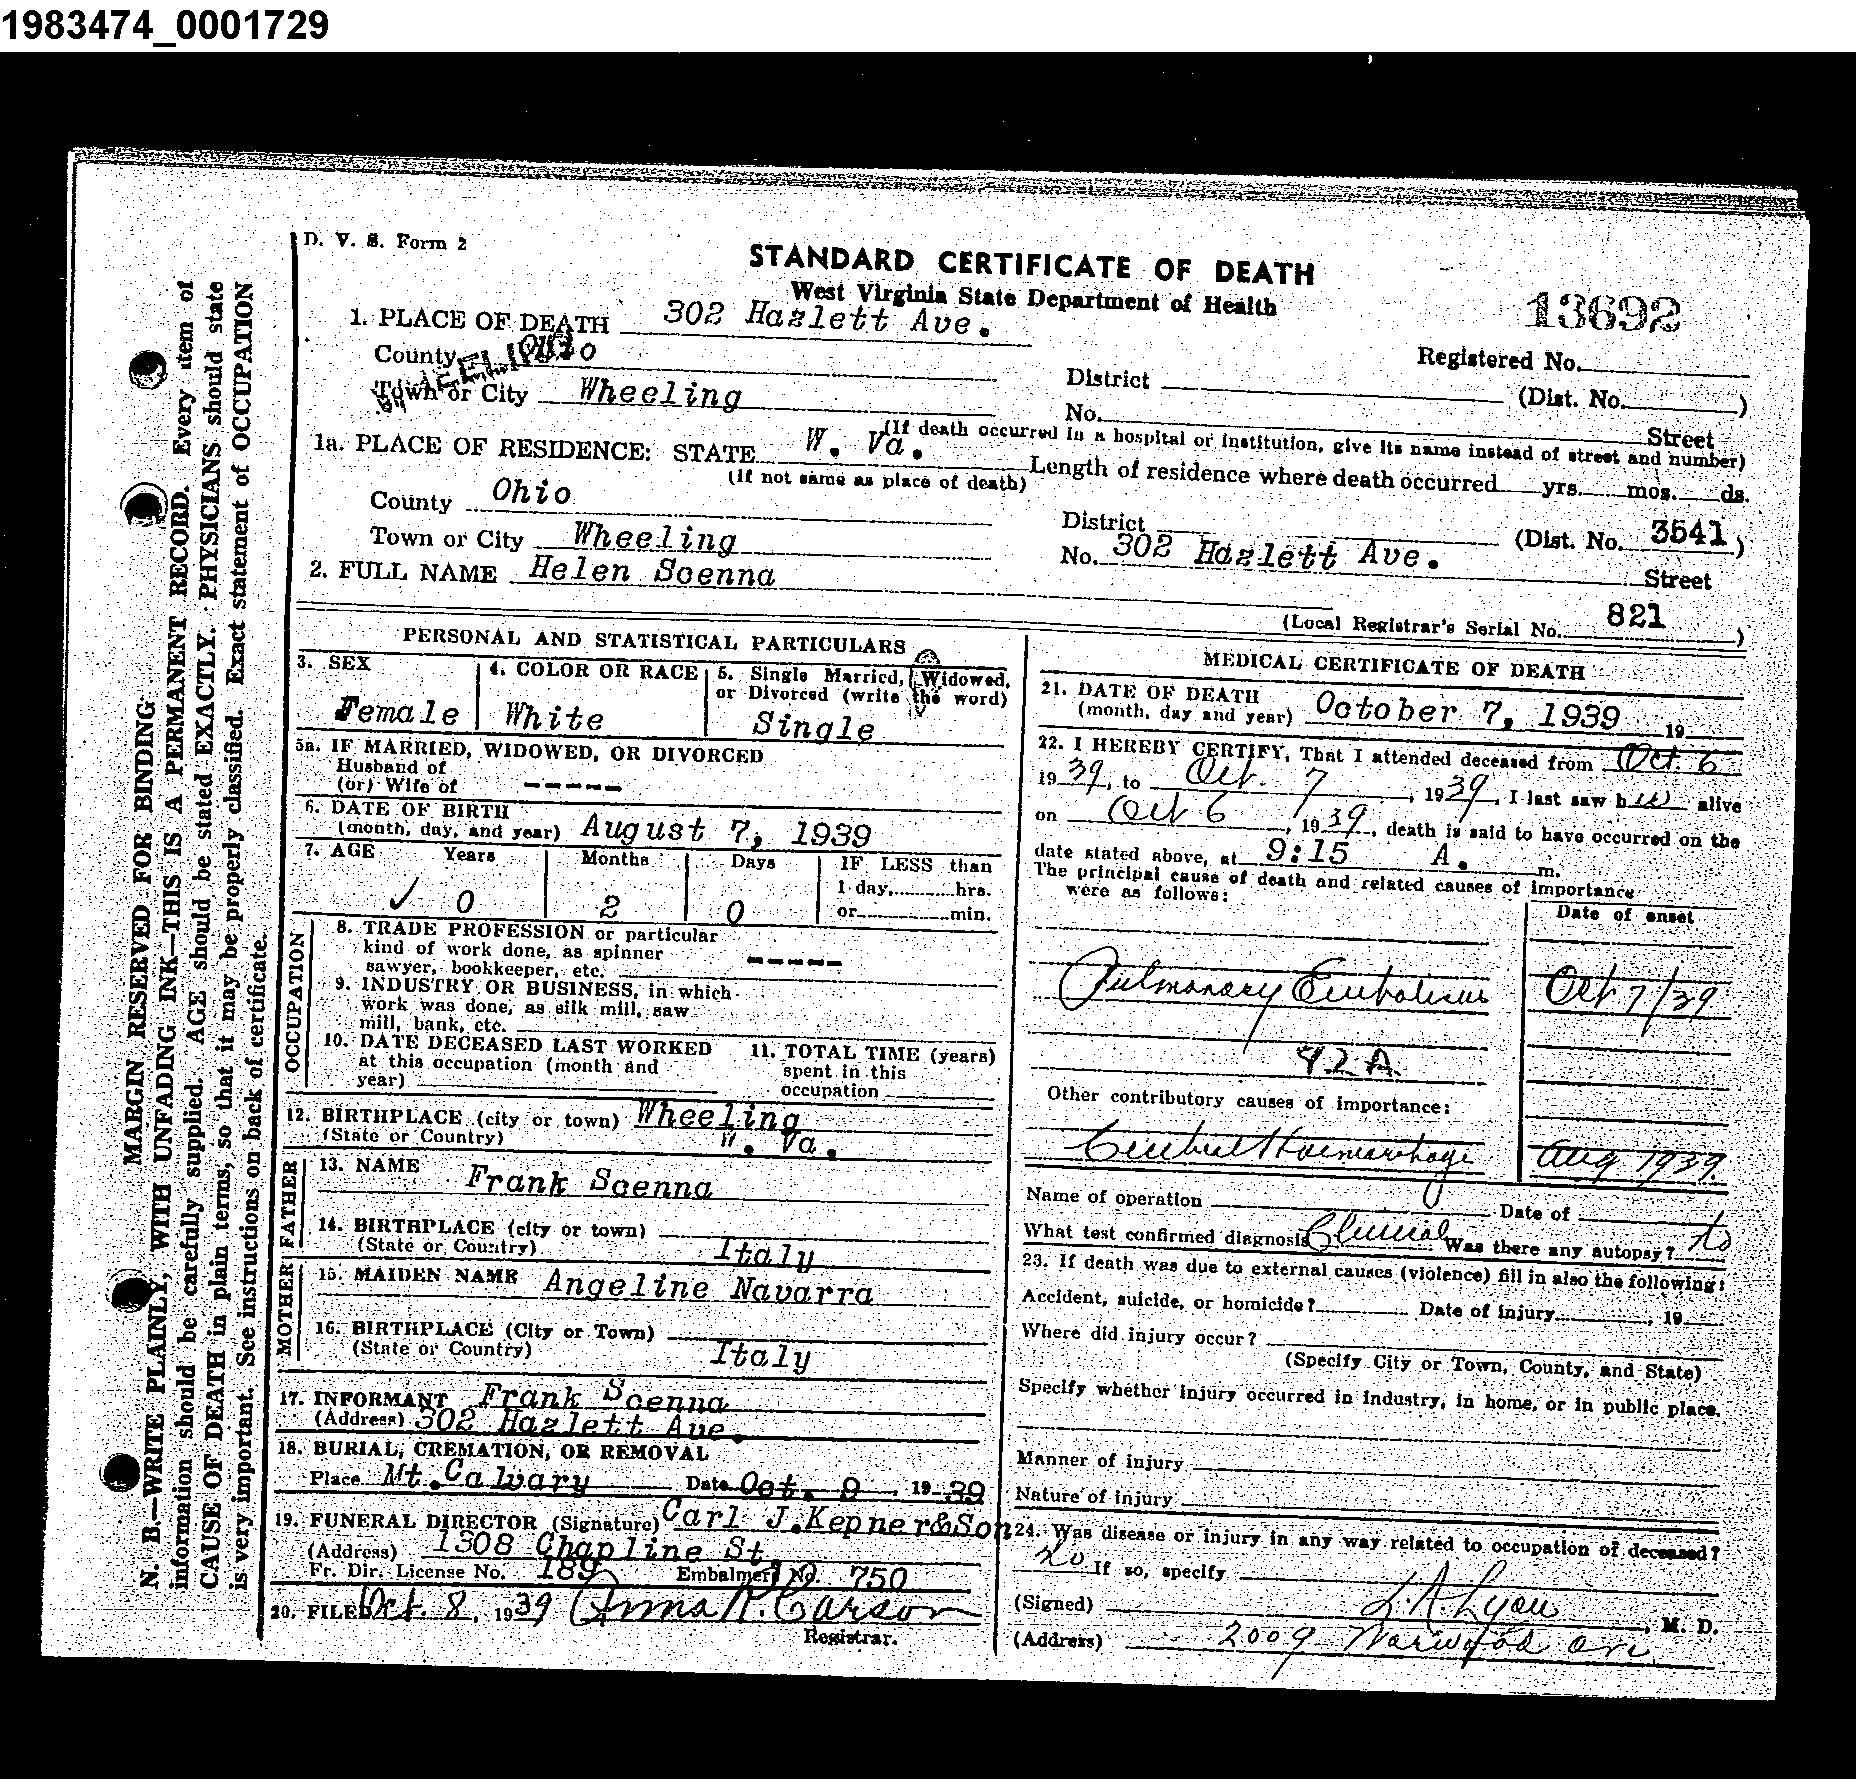 1983474_0001729
D. V. S. Form 2
STANDARD CERTIFICATE OF DEATH
West Virginia State Department of Health
13692
1. PLACE OF DEATH 302 Hazlett Ave.
Registered No.
County Ohio
District (Dist. No. )
Town or City Wheeling
No. Street
(If death occurred in a hospital or institution, give its name instead of street and number)
1a. PLACE OF RESIDENCE: STATE W. Va.
(If not same as place of death)
Length of residence where death occurred yrs. mos. ds.
County Ohio
District (Dist. No. 3541 )
Town or City Wheeling
No. 302 Hazlett Ave. Street
2. FULL NAME Helen Scenna
(Local Registrar's Serial No. 821 )
PERSONAL AND STATISTICAL PARTICULARS
3. SEX
Female
4. COLOR OR RACE
White
5. Single Married, Widowed,
or Divorced (write the word)
Single
5a. IF MARRIED, WIDOWED, OR DIVORCED
Husband of
(or) Wife of -----
6. DATE OF BIRTH
(month, day, and year) August 7, 1939
7. AGE Years Months Days IF LESS than
1 day, hrs.
✓ 0 2 0 or min.
OCCUPATION
8. TRADE PROFESSION or particular
kind of work done, as spinner
sawyer, bookkeeper, etc. -----
9. INDUSTRY OR BUSINESS, in which
work was done, as silk mill, saw
mill, bank, etc.
10. DATE DECEASED LAST WORKED
at this occupation (month and
year)
11. TOTAL TIME (years)
spent in this
occupation
12. BIRTHPLACE (city or town) Wheeling
(State or Country) W. Va.
FATHER
13. NAME Frank Scenna
14. BIRTHPLACE (city or town)
(State or Country) Italy
MOTHER
15. MAIDEN NAME Angeline Navarra
16. BIRTHPLACE (City or Town)
(State or Country) Italy
17. INFORMANT Frank Scenna
(Address) 302 Hazlett Ave.
18. BURIAL, CREMATION, OR REMOVAL
Place Mt. Calvary Date Oct. 9, 1939
19. FUNERAL DIRECTOR (Signature) Carl J. Kepner&Son
(Address) 1308 Chapline St.
Fr. Dir. License No. 189 Embalmers No. 750
20. FILED Oct. 8, 1939 Anna R. Carson
Registrar.
MEDICAL CERTIFICATE OF DEATH
21. DATE OF DEATH
(month, day and year) October 7, 1939 19
22. I HEREBY CERTIFY, That I attended deceased from Oct. 6
1939, to Oct. 7, 1939, I last saw her alive
on Oct 6, 1939, death is said to have occurred on the
date stated above, at 9:15 A. m.
The principal cause of death and related causes of importance
were as follows:
Date of onset
Pulmonary Embolism Oct 7/39
92A.
Other contributory causes of importance:
Cerebral Haemorrhage Aug 1939.
Name of operation Date of
What test confirmed diagnosis Clinical Was there any autopsy? No
23. If death was due to external causes (violence) fill in also the following:
Accident, suicide, or homicide? Date of injury , 19
Where did injury occur?
(Specify City or Town, County, and State)
Specify whether injury occurred in industry, in home, or in public place.
Manner of injury
Nature of injury
24. Was disease or injury in any way related to occupation of deceased?
No If so, specify
(Signed) L. A. Lyon, M. D.
(Address) 2009 Warwood ave
MARGIN RESERVED FOR BINDING
N. B.—WRITE PLAINLY, WITH UNFADING INK—THIS IS A PERMANENT RECORD. Every item of
information should be carefully supplied. AGE should be stated EXACTLY. PHYSICIANS should state
CAUSE OF DEATH in plain terms, so that it may be properly classified. Exact statement of OCCUPATION
is very important. See instructions on back of certificate.